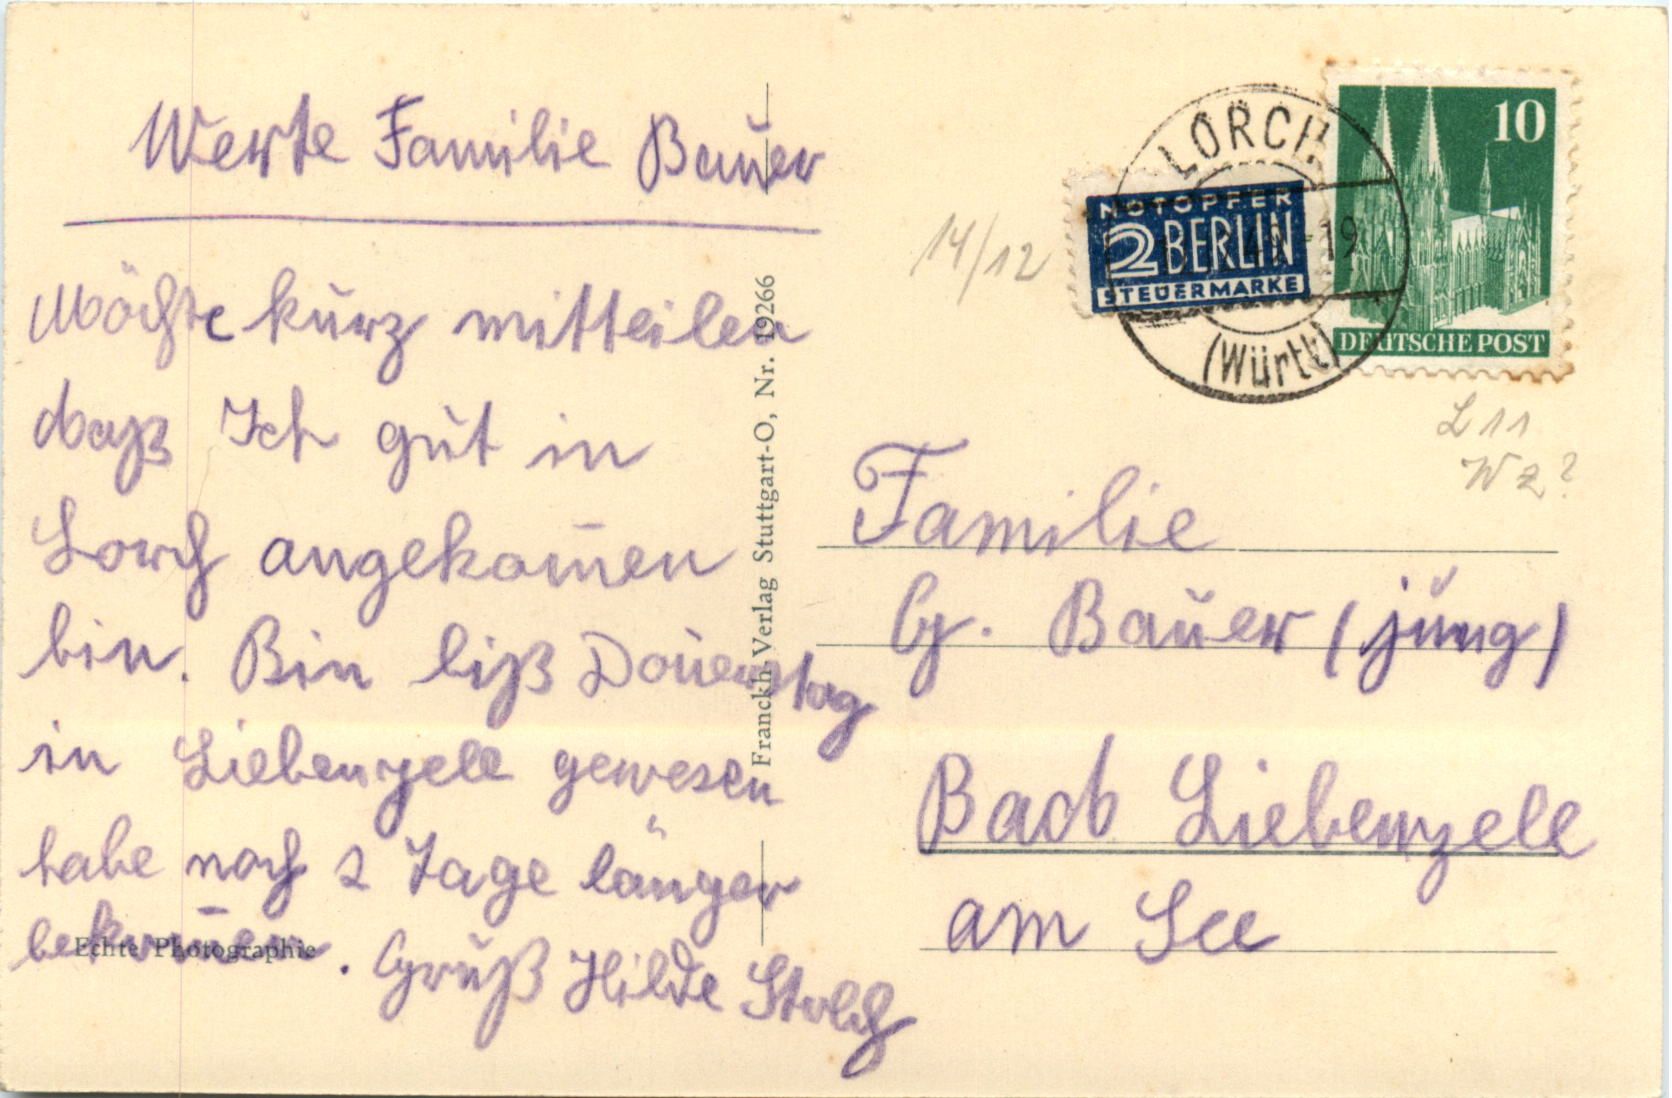 Werte Familie Bauer
Möchte kurz mitteilen
daß Ich gut in
Lorch angekom̄en
bin. Bin biß Don̄erstag
in Liebenzell gewesen
habe noch 2 Tage länger
bekom̄en. Gruß Hilde
Echte Photographie
Franckh-Verlag Stuttgart-O, Nr. 19266
14/12
LORCH
(Württ)
-19
NOTOPFER
2 BERLIN
STEUERMARKE
10
DEUTSCHE POST
L 11
WZ?
Familie
G. Bauer (jung)
Bad Liebenzell
am See